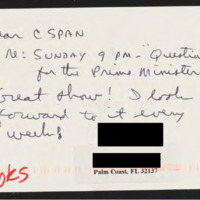 ear CSPAN
Re: SUNDAY 9 PM - "Question
for the Prime Minister
Great show! I look
forward to it every
week!
Palm Coast, FL 32137
oks